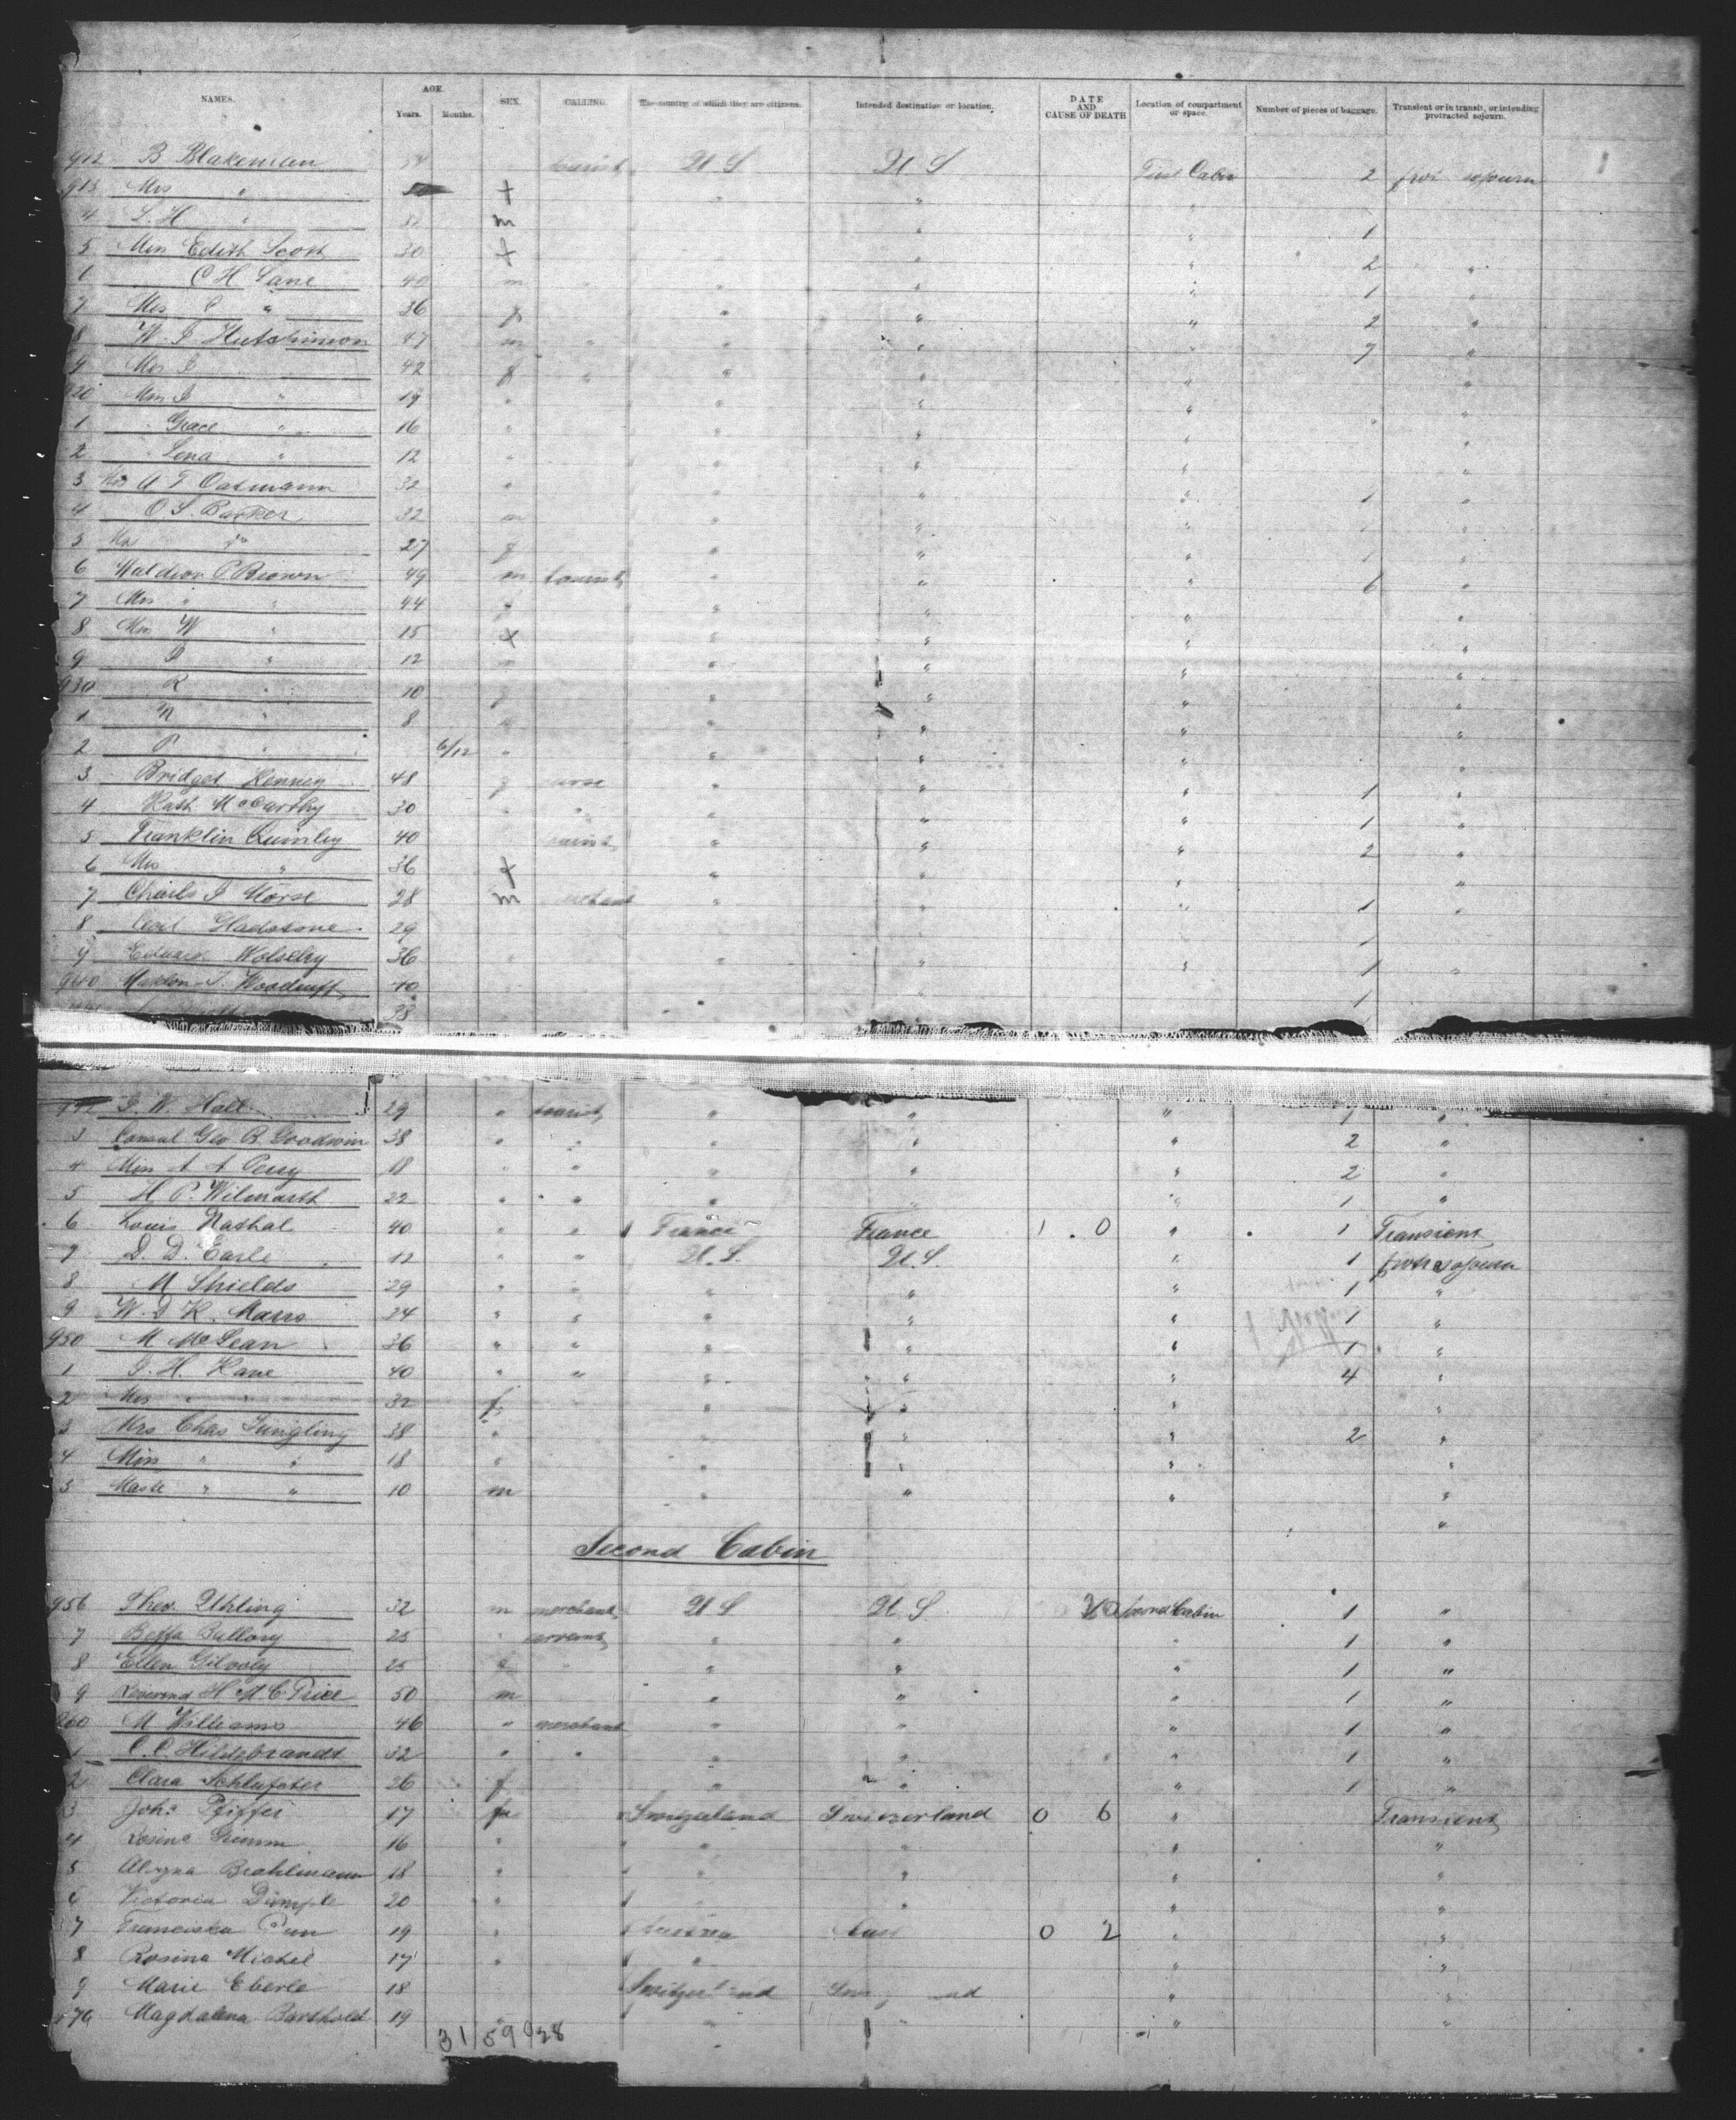 NAMES. AGE. Years. Months. SEX. CALLING. The country of which they are citizens. Intended destination or location. DATE AND CAUSE OF DEATH Location of compartment or space. Number of pieces of baggage. Transient or in transit, or intending protracted sojourn.
912 B Blakeman 54 tourist U S U S First Cabin 2 prot sojourn
913 Mrs " f " " "
4 L. H " m " " 1
5 Miss Edith Scott 30 f " " " 2 "
6 C H Lane 40 m " " " 1 "
7 Mrs C " 36 f " " " 2 "
8 W. I Hutchinson 47 m " " " " 7 "
9 Mrs I " 42 f " " " " "
920 Miss I " 19 " " " " "
1 " Grace " 16 " " " " "
2 " Lena " 12 " " " " "
3 Mrs A F Oatmann 32 " " " " 1 "
4 O. S. Barker 32 m " " " 1 "
5 Mrs " 27 f " " " 1 "
6 Waldron P. Brown 49 m tourist " " " 6 "
7 Mrs " " 44 f " " " "
8 Miss W " 15 f " " " "
9 I " 12 m " " " "
930 R " 10 f " " " "
1 N " 8 " " " " "
2 P " 6/12 " " " " "
3 Bridget Kenney 48 f nurse " " " 1 "
4 Kath. McCarthy 30 " " " " " 1 "
5 Franklin Quimby 40 tourist " " " 2 "
6 Mrs " 36 f " " " "
7 Charls I Morse 28 m merchant " " " 1 "
8 Cecil Gladstone 29 1
9 Edward Wolseley 36 " " " " 1 "
940 Mahlon S. Woodruff 40 1
38
942 I. W. Hall 29 " tourist " " " 1 "
3 Consul Geo B. Goodwin 38 " " " " " 2 "
4 Miss A A Perry 18 " " " " " 2 "
5 H P. Wilmarth 22 " " " " " 1 "
6 Louis Nathal 40 " " France France 1 . 0 " 1 Transient
7 D. D. Earle 12 " " U. S. U. S. " 1 prot sojourn
8 M Shields 29 " " " " " 1 "
9 W. D K. Marrs 24 " " " " " 1 "
950 M McLean 36 " " " " " 1 "
1 I. H. Kane 40 " " " " " 4 "
2 Mrs " " 32 f " " " "
3 Mrs Chas Jungling 38 " " " " 2 "
4 Miss " " 18 " " " " "
5 Mastr " " 10 m " " " "
"
Second Cabin
956 Theo. Uhling 32 m merchant U S U S 20 Second Cabin 1 "
7 Beffa Bullory 25 " servant " " " 1 "
8 Ellen Gilvoly 25 " " " " " 1 "
9 Reverend H M C Price 50 m " " " 1 "
960 M Williams 46 " merchant " " " 1 "
1 C. C. Hildebrandt 32 " " " " " 1 "
2 Clara Schlufster 26 f " " " 1 "
3 Joh: Pfiffer 17 Switzerland Switzerland 0 6 " Transient
4 Rosina Grumm 16 " " " " "
5 18 " " " " "
6 Victoria Dumple 20 " " " " "
7 Franciska 19 " Austria 0 2 " "
8 Rosina Michel 17 " " " "
9 Marie Eberle 18 Switzerland " "
970 Magdalena Barthold 19 " " " " "
31 59 28